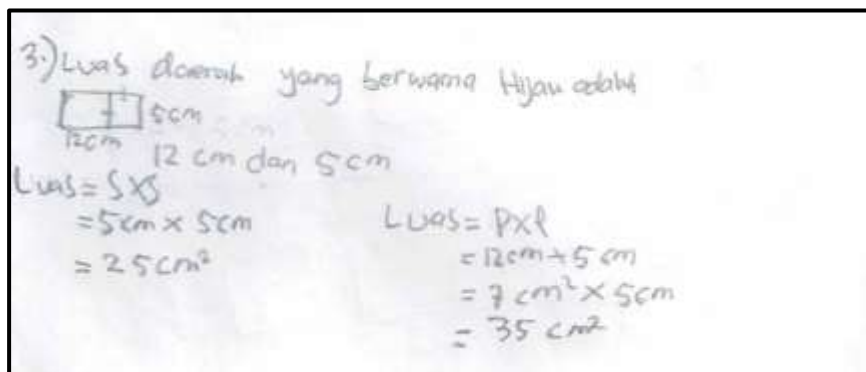 3.) Luas daerah yang berwarna Hijau adalah
5cm
12cm
12 cm dan 5cm
Luas = SXS
= 5cm x 5cm
= 25 cm²
Luas = PXl
= 12cm + 5 cm
= 7 cm² x 5cm
= 35 cm²